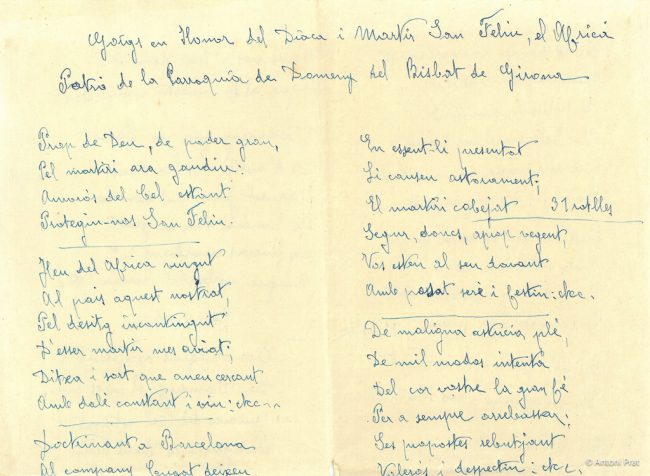 Goigs en Honor del Diaca i Martir San Feliu, el Africá
Patró de la Parroquia de Domeny del Bisbat de Girona
Prop de Deu, de poder gran,
Pel martiri ara gaudiu:
Amorós del Cel estant
Protegiu-nos San Feliu.
Heu del Africa vingut
Al pais aquest nostrat,
Pel desitg incontingut
D'esser martir mes aviat;
Ditxa i sort que aneu cercant
Amb dalé constant i viu: etc.
Doctrinant a Barcelona
Al company Cugat deixeu
En essent-li presentat
Li causeu astorament;
El martiri cobejat 31 rotlles
Segur, doncs, aprop vegent,
Vos esteu al seu davant
Amb posat seré i festiu: etc.
De maligna astucia plé,
De mil modos intentá
Del cor vostre la gran fé
Per a sempre arrebassar:
Ses propostes rebutjant
Valerós i despectiu: etc.
© Antoni Prat